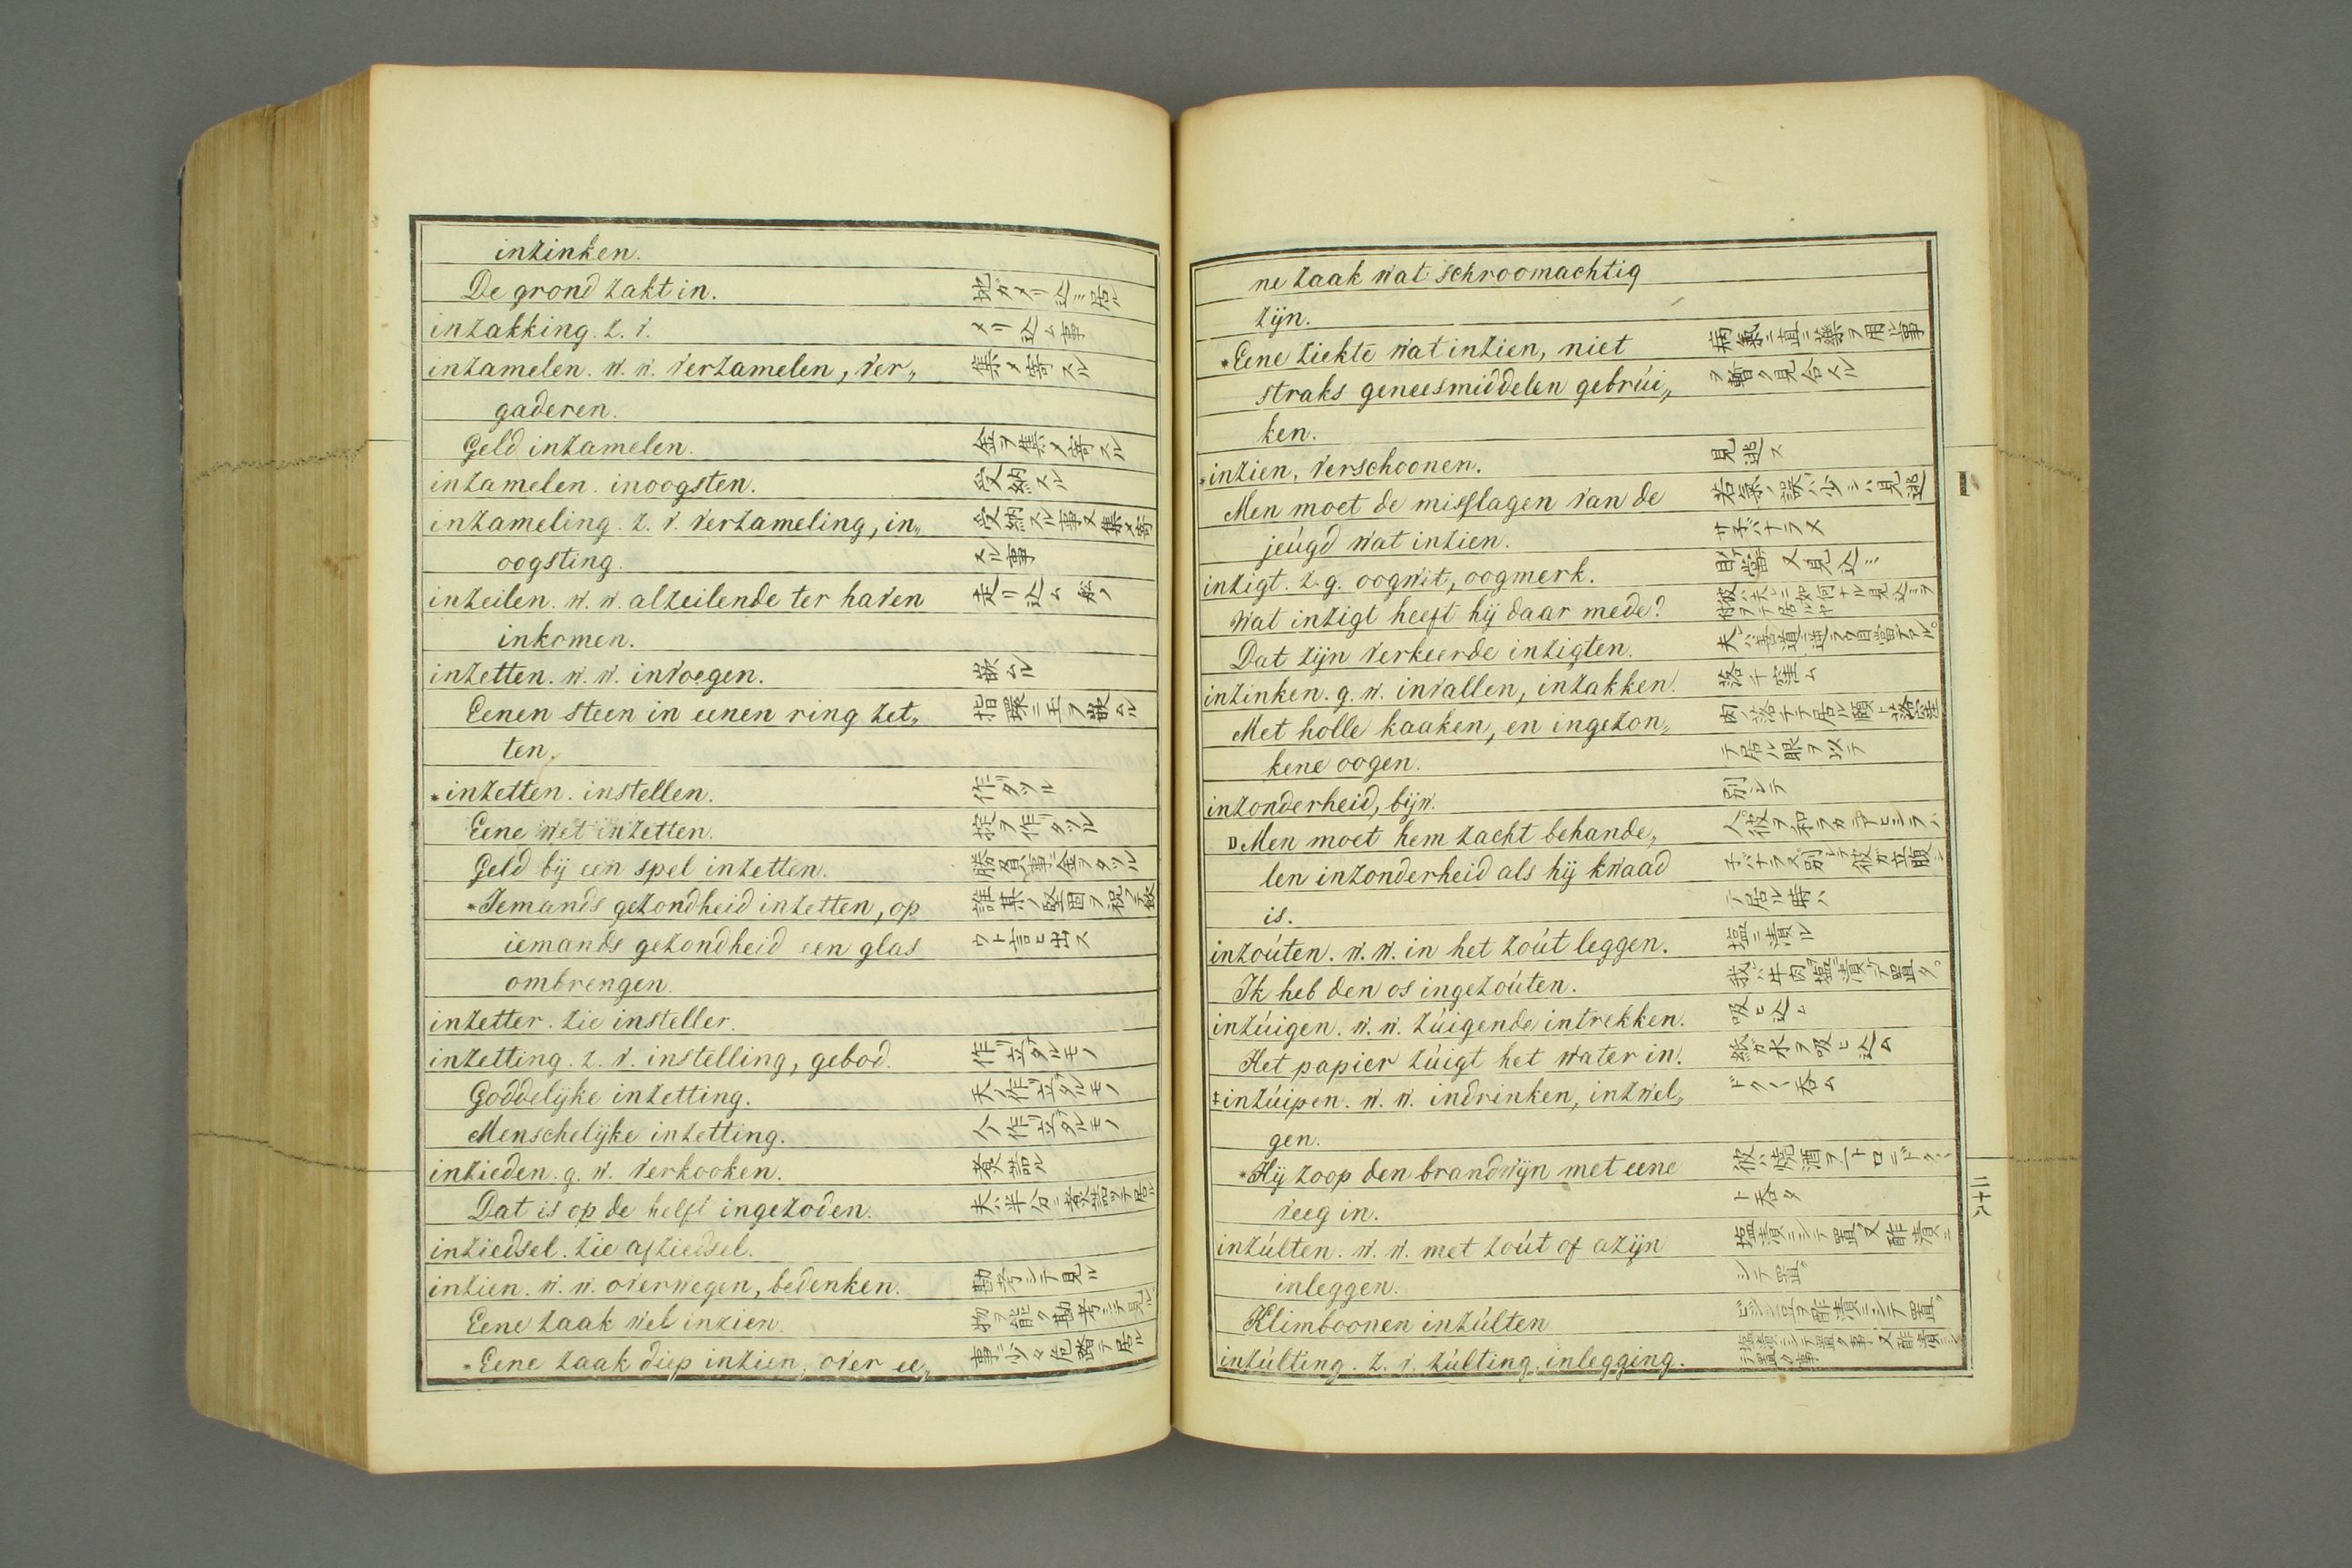 inzinken.
De grond zakt in. 地ガメリ込ミ居ル
inzakking. z. v. メリ込ム事
inzamelen. w. w. verzamelen, ver„ 集メ寄スル
gaderen.
Geld inzamelen. 金ヲ集メ寄スル
inzamelen. inoogsten. 受納スル
inzameling. z. v. verzameling, in„ 受納スル事又集メ寄
oogsting. スル事
inzeilen. w. w. alzeilende ter haven 走リ込ム
inkomen.
inzetten. w. w. invoegen. 嵌ムル
Eenen steen in eenen ring zet„ 指環ニ玉ヲ嵌ムル
ten.
*inzetten. instellen. 作リタツル
Eene wet inzetten. 掟ヲ作リタツル
Geld bij een spel inzetten. 勝負事ニ金ヲタツル
*Iemands gezondheid inzetten, op 誰某ノ堅固ヲ祝
iemands gezondheid een glas ウト言ヒ出ス
ombrengen.
inzetter. zie insteller.
inzetting. z. v. instelling, gebod. 作リ立タルモノ
Goddelijke inzetting. 天ノ作リ立タルモノ
Menschelijke inzetting. 人ノ作リ立タルモノ
inzieden. g. w. verkooken. 煮詰ル
Dat is op de helft ingezoden. 夫ハ半分ニ煮詰ツテ居ル
inziedsel. zie afziedsel.
inzien. w. w. overwegen, bedenken. 勘考シテ見ル
Eene zaak wel inzien. 物ヲ能ク勘考シテ見ル
*Eene zaak diep inzien, over ee„ 事ニ少々危踏テ居ル
ne zaak wat schroomachtig
zijn.
*Eene ziekte wat inzien, niet 病氣ニ直ニ藥ヲ用ル事
straks geneesmiddelen gebrúi„ ヲ暫ク見合スル
ken.
*inzien, verschoonen. 見逃ス
Men moet de misslagen van de 若氣ノ誤ハ少シハ見逃
jeúgd wat inzien. サネバナラヌ
inzigt. z. g. oogwit, oogmerk. 目當又見込ミ
Wat inzigt heeft hij daar mede? 彼ハ夫ニ如何ナル見込ミヲ付ヲテ居ルヤ
Dat zijn verkeerde inzigten.
inzinken. g. w. invallen, inzakken. 落チ窪ム
Met holle kaaken, en ingezon„ 肉ノ落チテ居ル頤ト落窪
kene oogen. テ居ル眼ヲ以テ
inzonderheid, bijw. 別シテ
DMen moet hem zacht behande„
len inzonderheid als hij kwaad 子バナラヌ別シテ彼ガ立腹シ
is. テ居ル時ハ
inzoúten. w. w. in het zoút leggen. 塩ニ漬ル
Ik heb den os ingezoúten. 我ハ牛肉塩ニ漬ケテ置タ。
inzúigen. w. w. zúigende intrekken. 吸ヒ込ム
Het papier zúigt het water in. 紙ガ水ヲ吸ヒ込ム
‡inzúipen. w. w. indrinken, inzwel„ ドク〱呑ム
gen.
*Hij zoop den brandwijn met eene 彼ハ燒酒ヲ一トロニドク〱
veeg in. ト呑タ
inzúlten. w. w. met zoút of azijn 塩漬ニシテ置又酢漬ニ
inleggen. シテ置
Klimboonen inzúlten 豆ヲ酢漬ニシテ置
inzúlting. z. v. zúlting, inlegging. 塩漬ニシテ置ク事又酢漬ニシテ置ク事
I
二十六